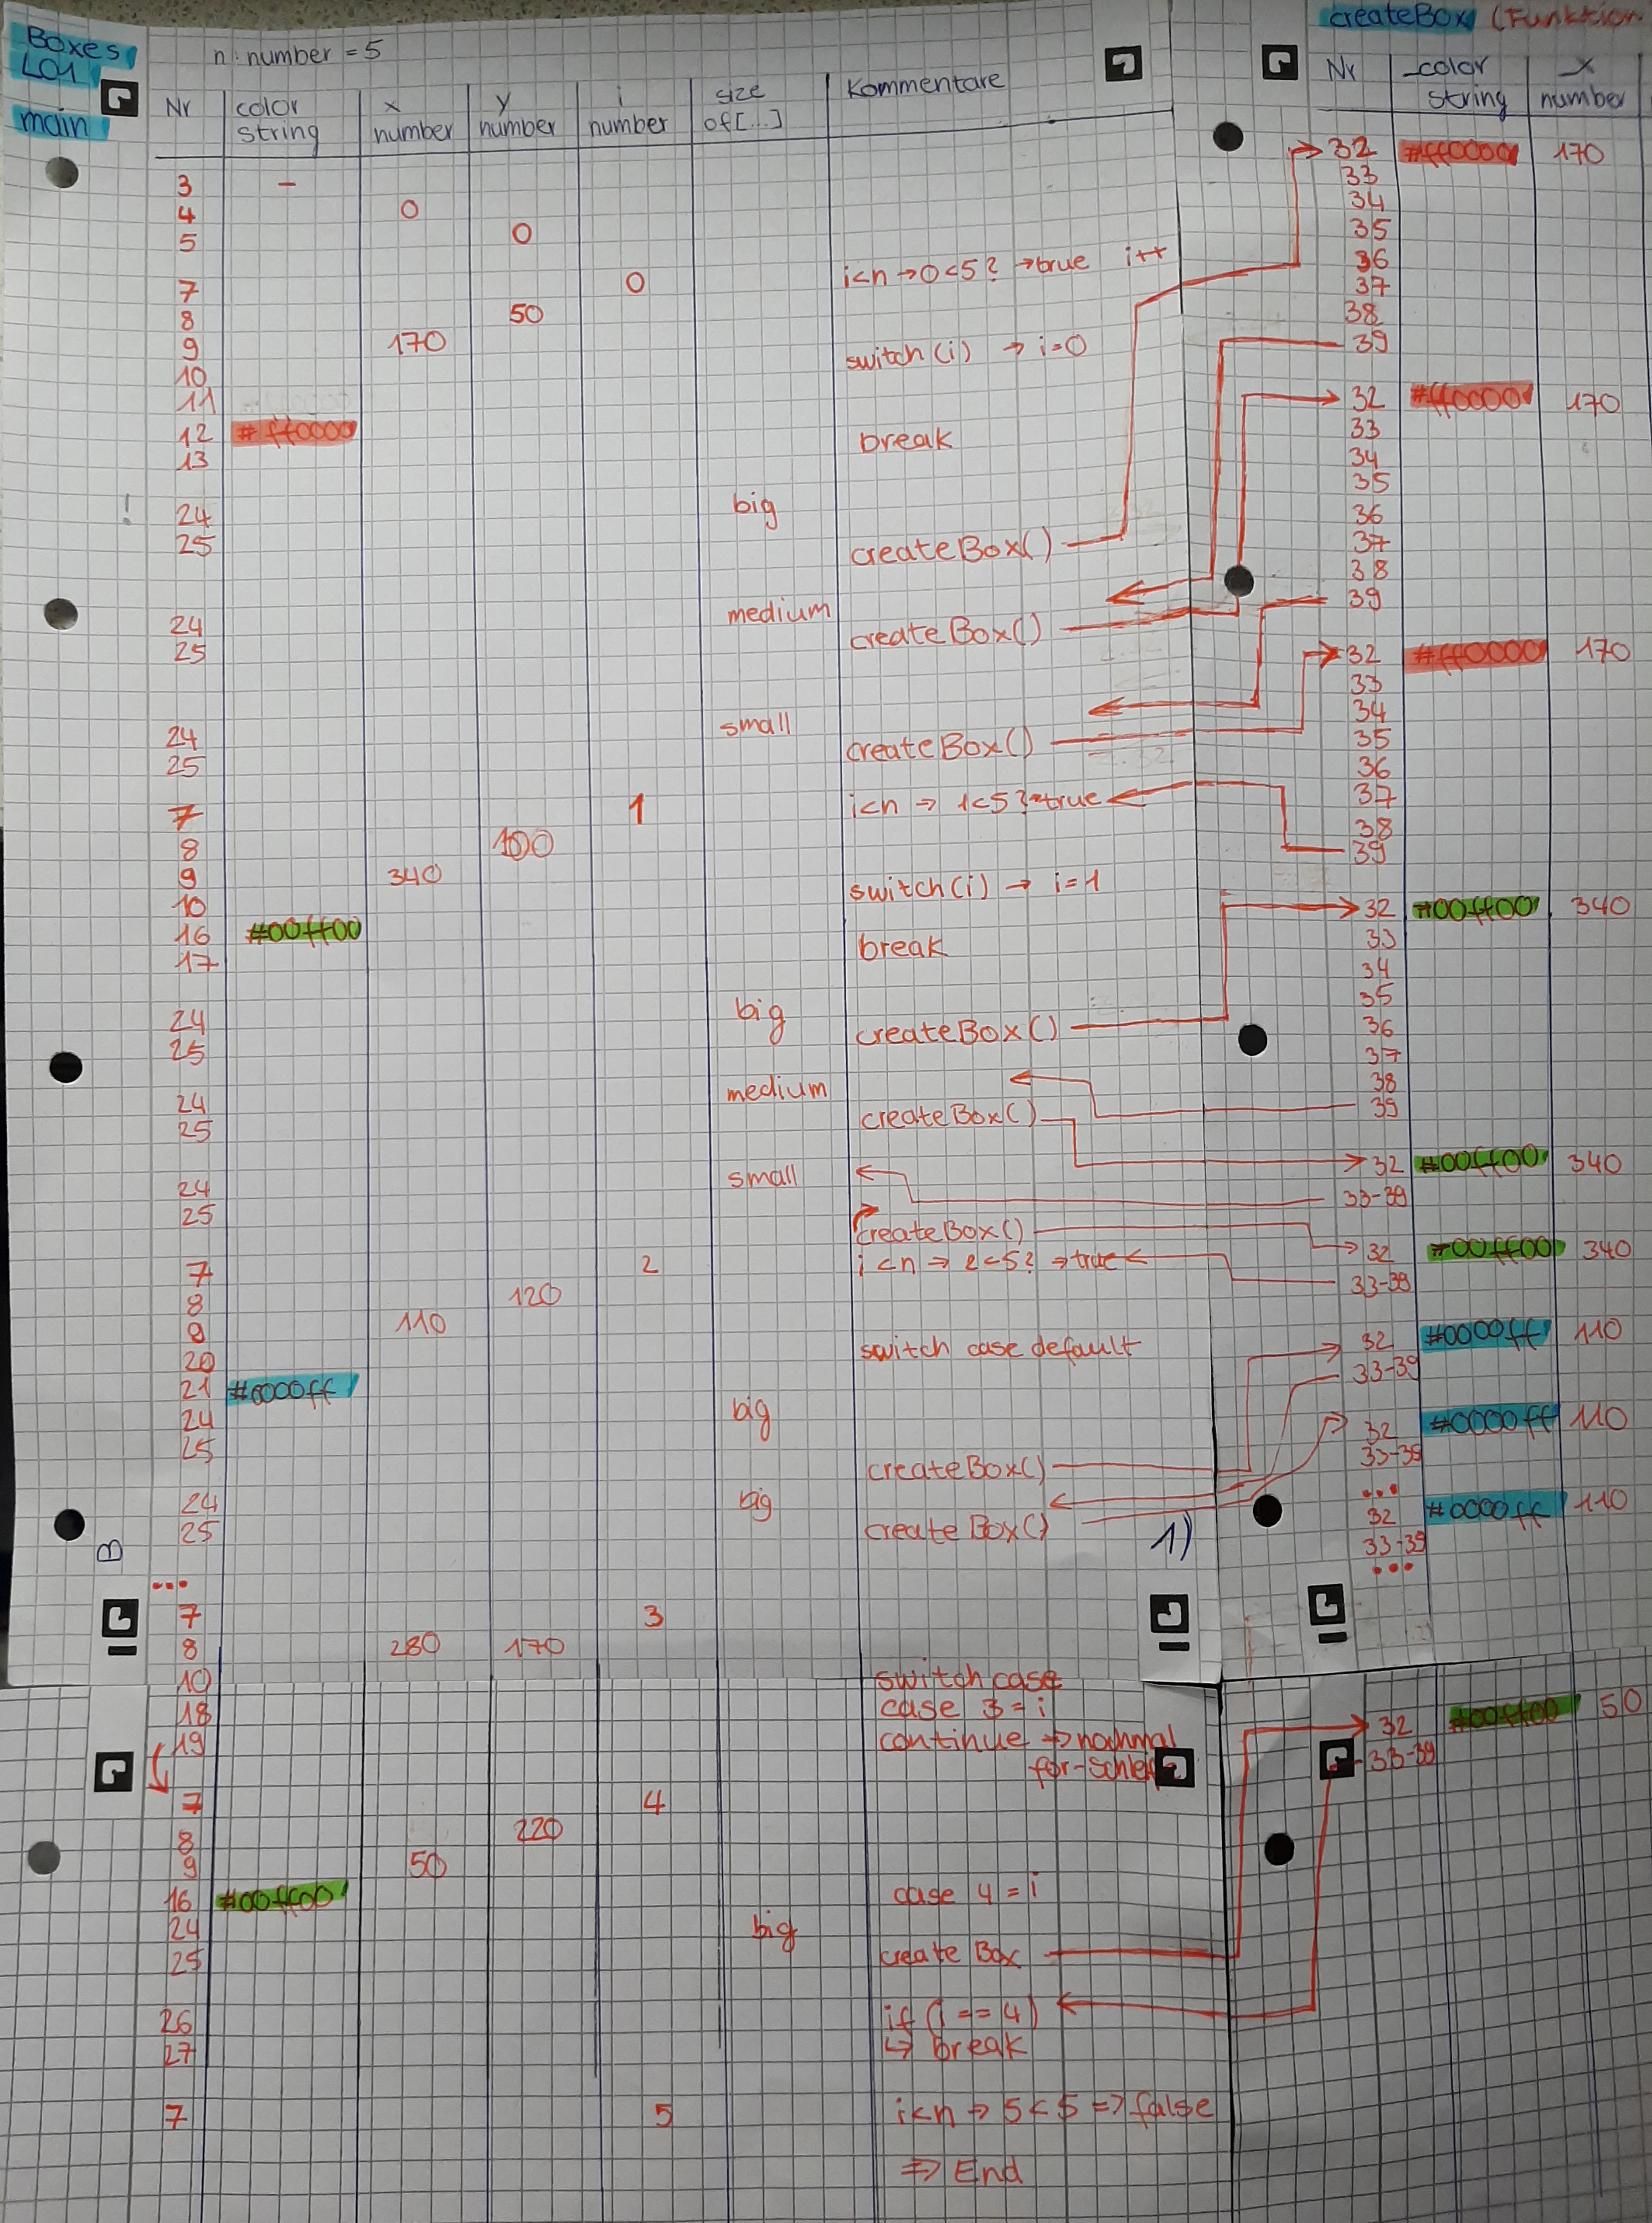 Boxes
L01
main
n: number = 5
Nr color string x number y number i number size of[...] Kommentare
3 –
4 0
5 0
7 0 i<n → 0<5? → true i++
8 50
9 170 switch(i) → i=0
10
11
12 #ff0000 break
13
! 24 big
25 createBox()
24 medium
25 createBox()
24 small
25 createBox()
7 1 i<n → 1<5? → true
8 100
9 340 switch(i) → i=1
10
16 #00ff00 break
17
24 big
25 createBox()
24 medium
25 createBox()
24 small
25 createBox()
7 2 i<n → 2<5? → true
8 120
9 110
20 switch case default
21 #0000ff
24 big
25 createBox()
24 big
25 createBox()
1)
B
...
7 3
8 280 170
10 switch case
18 case 3 = i
19 continue → nochmal
for-Schleife
7 4
8 220
9 50
16 #00ff00 case 4 = i
24 big
25 create Box
26 if (i == 4)
27 ↳ break
7 5 i<n → 5<5 => false
=> End
createBox (Funktion
Nr _color string _x number
32 #ff0000 170
33
34
35
36
37
38
39
32 #ff0000 170
33
34
35
36
37
38
39
32 #ff0000 170
33
34
35
36
37
38
39
32 #00ff00 340
33
34
35
36
37
38
39
32 #00ff00 340
33-39
32 #00ff00 340
33-39
32 #0000ff 110
33-39
32 #0000ff 110
33-39
...
32 #0000ff 110
33-39
...
32 #00ff00 50
33-39